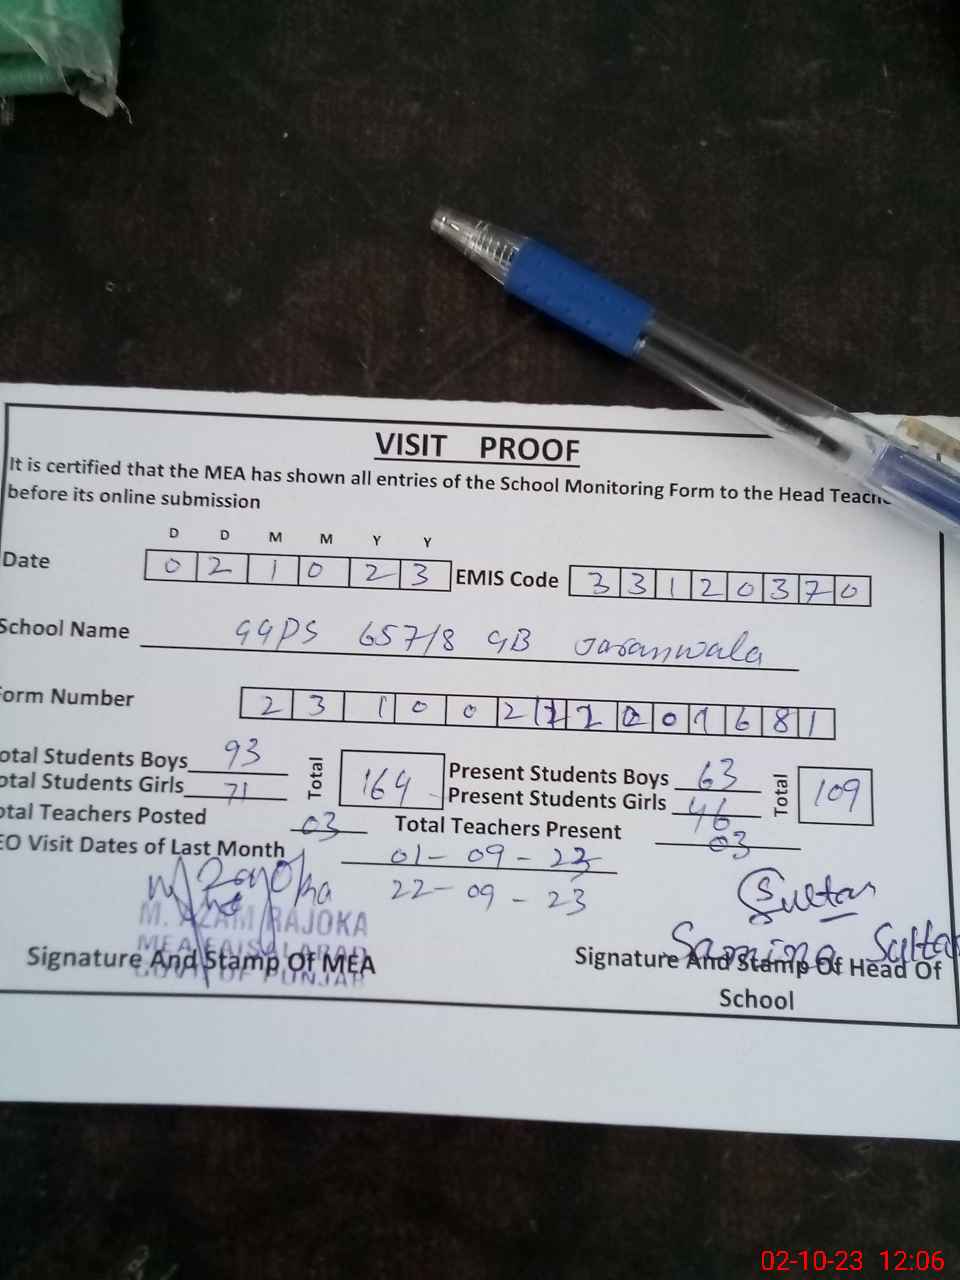 VISIT PROOF
It is certified that the MEA has shown all entries of the School Monitoring Form to the Head Teache
before its online submission
D D M M Y Y
Date 0 2 1 0 2 3 EMIS Code 3 3 1 2 0 3 7 0
School Name GGPS 657/8 GB Jaranwala
orm Number 2 3 1 0 0 2
otal Students Boys 93 Total 164 Present Students Boys 63 Total 109
otal Students Girls 71 Present Students Girls 46
otal Teachers Posted 03 Total Teachers Present 03
EO Visit Dates of Last Month 01-09-23
22-09-23
Sultan
M. AZAM RAJOKA
MEA FAISALABAD
GOVT OF PUNJAB
Samina Sultan
Signature And Stamp Of MEA
Signature And Stamp Of Head Of
School
02-10-23 12:06